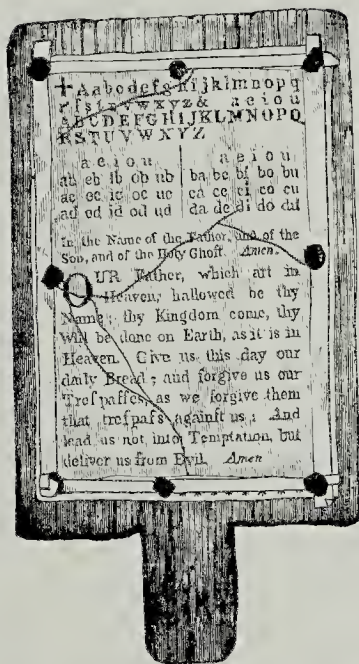 ✚ Aabcdefghijklmnopq
rſstuvwxyz& a e i o u
ABCDEFGHIJKLMNOPQ
RSTUVWXYZ
a e i o u a e i o u
ab eb ib ob ub ba be bi bo bu
ac ec ic oc uc ca ce ci co cu
ad ed id od ud da de di do du
In the Name of the Father, and of the
Son, and of the Holy Ghoſt. Amen.
OUR Father, which art in
Heaven, hallowed be thy
Name; thy Kingdom come, thy
Will be done on Earth, as it is in
Heaven. Give us this day our
daily Bread; and forgive us our
Treſpaſſes, as we forgive them
that treſpaſs againſt us: And
lead us not into Temptation, but
deliver us from Evil. Amen